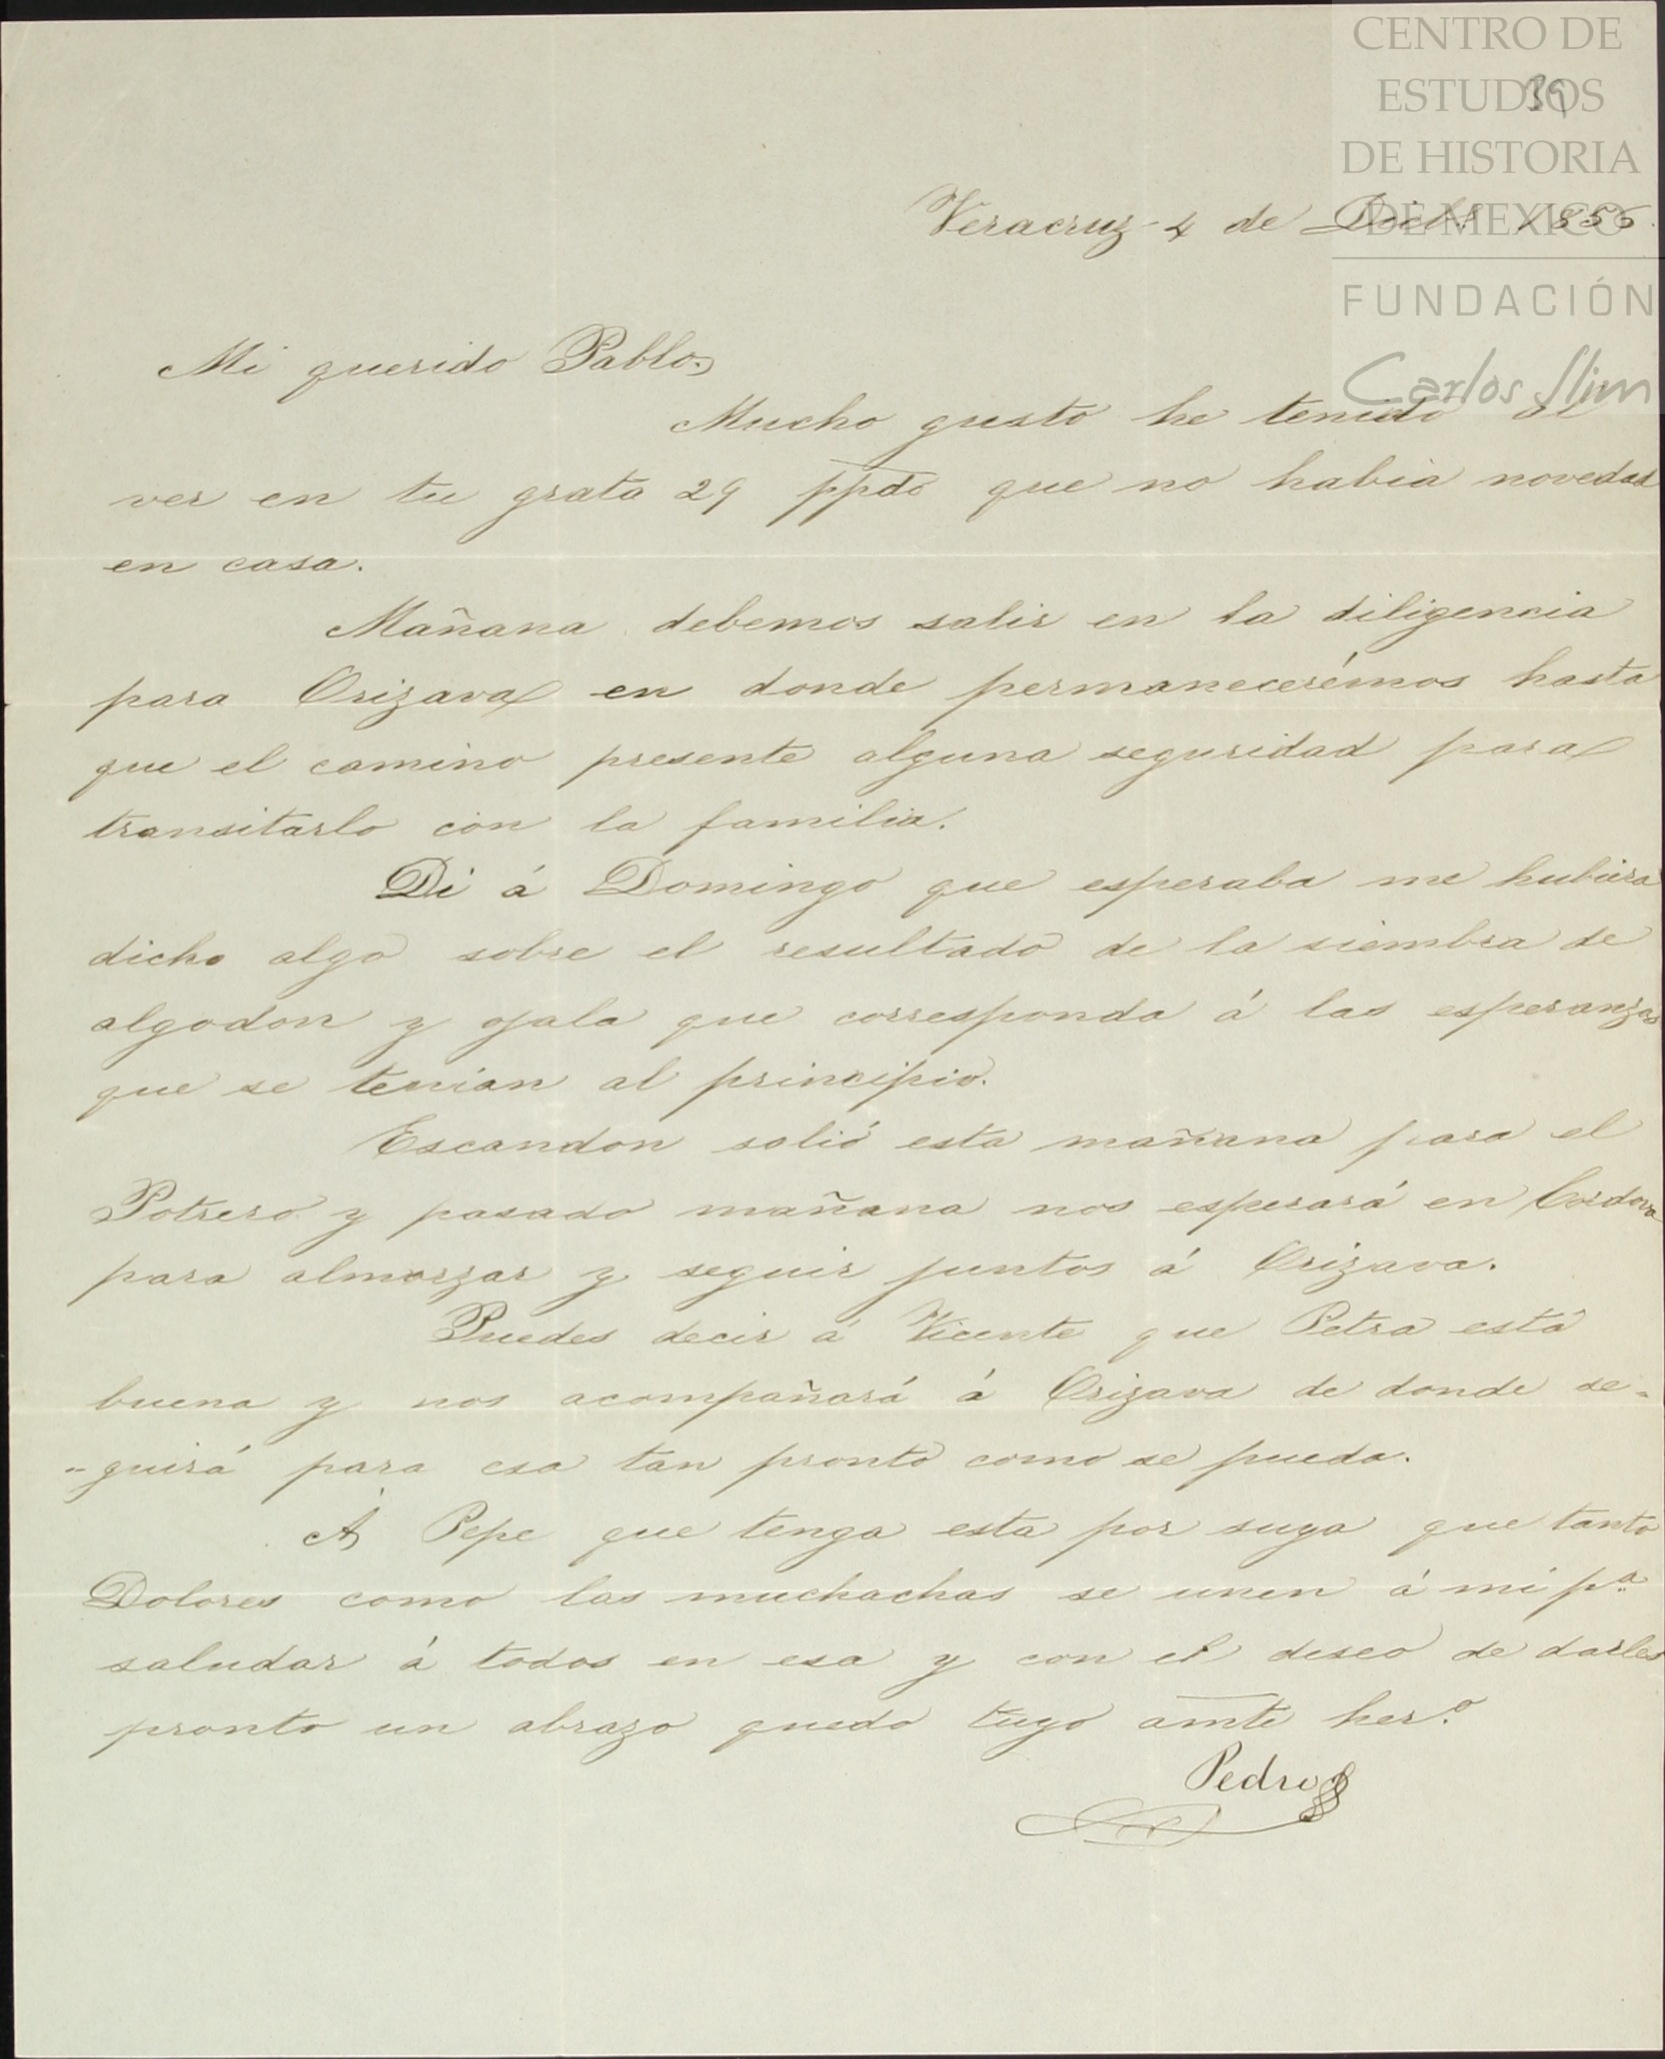 CENTRO DE
ESTUDIOS
DE HISTORIA
DE MEXICO
FUNDACIÓN
Carlos Slim
39
Veracruz 4 de Dicb.e
Mi querido Pablo,
Mucho gusto he tenido al
ver en tu grata 29 ppdo que no habia novedad
en casa.
Mañana debemos salir en la diligencia
para Orizava en donde permanecerémos hasta
que el camino presente alguna seguridad para
transitarlo con la familia.
Di á Domingo que esperaba me hubiera
dicho algo sobre el resultado de la siembra de
algodon y ojala que corresponda á las esperanzas
que se tenian al principio.
Escandon salió esta mañana para el
Potrero y pasado mañana nos esperará en Cordova
para almorzar y seguir juntos á Orizava.
Puedes decir á Vicente que Petra está
buena y nos acompañará á Orizava de donde se-
-guirá para esa tan pronto como se pueda.
A Pepe que tenga esta por suya que tanto
Dolores como las muchachas se unen á mi p.a
saludar á todos en esa y con el deseo de darles
pronto un abrazo quedo tuyo amte her.o
Pedro